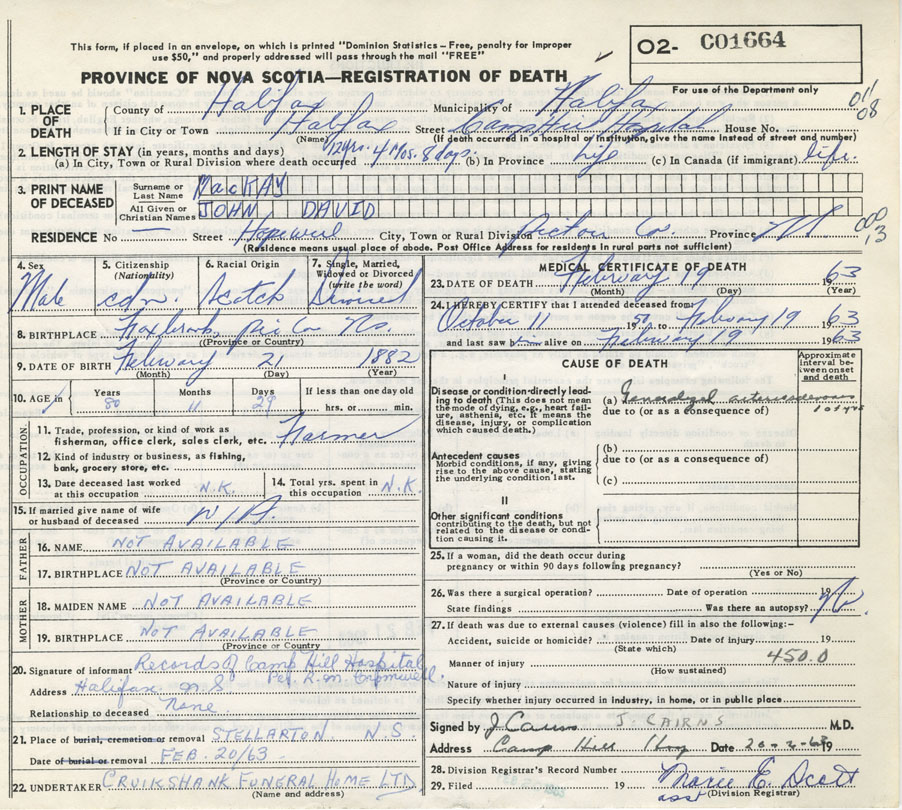 This form, if placed in an envelope, on which is printed "Dominion Statistics - Free, penalty for improper
use $50," and properly addressed will pass through the mail "FREE"
O2- C01664
For use of the Department only
PROVINCE OF NOVA SCOTIA—REGISTRATION OF DEATH
011
08
1. PLACE OF DEATH
County of Halifax Municipality of Halifax
If in City or Town Halifax Street Hospital House No.
(Name) (If death occurred in a hospital or institution, give the name instead of street and number)
2. LENGTH OF STAY (in years, months and days)
(a) In City, Town or Rural Division where death occurred 12 yrs. 4 Mos. 8 days. (b) In Province Life (c) In Canada (if immigrant) life.
3. PRINT NAME OF DECEASED
Surname or Last Name MacKAY
All Given or Christian Names JOHN DAVID
000
13
RESIDENCE No — Street Hopewell City, Town or Rural Division Pictou Co. Province
(Residence means usual place of abode. Post Office Address for residents in rural parts not sufficient)
4. Sex Male
5. Citizenship (Nationality) cdn.
6. Racial Origin Scotch
7. Single, Married, Widowed or Divorced (write the word) Divorced
8. BIRTHPLACE Pic Co Ns.
(Province or Country)
9. DATE OF BIRTH February 21 1882
(Month) (Day) (Year)
10. AGE in Years 80 Months 11 Days 29 If less than one day old hrs. or min.
OCCUPATION
11. Trade, profession, or kind of work as fisherman, office clerk, sales clerk, etc. Farmer
12. Kind of industry or business, as fishing, bank, grocery store, etc.
13. Date deceased last worked at this occupation N.K.
14. Total yrs. spent in this occupation N.K.
15. If married give name of wife or husband of deceased N/A.
FATHER
16. NAME NOT AVAILABLE
17. BIRTHPLACE NOT AVAILABLE
(Province or Country)
MOTHER
18. MAIDEN NAME NOT AVAILABLE
19. BIRTHPLACE NOT AVAILABLE
(Province or Country)
20. Signature of informant Records of Camp Hill Hospital
Per R.M.
Address Halifax N S
Relationship to deceased None
21. Place of burial, cremation or removal STELLARTON N.S
Date of burial or removal FEB. 20/63
22. UNDERTAKER CRUIKSHANK FUNERAL HOME LTD
(Name and address)
MEDICAL CERTIFICATE OF DEATH
23. DATE OF DEATH February 19 1963
(Month) (Day) (Year)
24. I HEREBY CERTIFY that I attended deceased from:
October 11 1950 to February 19 1963
and last saw alive on February 19 1963
CAUSE OF DEATH
Approximate interval between onset and death
I
Disease or condition directly leading to death (This does not mean the mode of dying, e.g., heart failure, asthenia, etc. It means the disease, injury, or complication which caused death.)
(a) Generalized arteriosclerosis
due to (or as a consequence of)
Antecedent causes
Morbid conditions, if any, giving rise to the above cause, stating the underlying condition last.
(b)
due to (or as a consequence of)
(c)
II
Other significant conditions
contributing to the death, but not related to the disease or condition causing it.
25. If a woman, did the death occur during pregnancy or within 90 days following pregnancy?
(Yes or No)
26. Was there a surgical operation? Date of operation 19
State findings Was there an autopsy? No.
27. If death was due to external causes (violence) fill in also the following:—
Accident, suicide or homicide? Date of injury 19
(State which)
450.0
Manner of injury
(How sustained)
Nature of injury
Specify whether injury occurred in industry, in home, or in public place
Signed by J. Cairns J. CAIRNS M.D.
Address Camp Hill Hosp Date 20-2-63 19
28. Division Registrar's Record Number
29. Filed 19 Marie E. Scott
asst (Division Registrar)